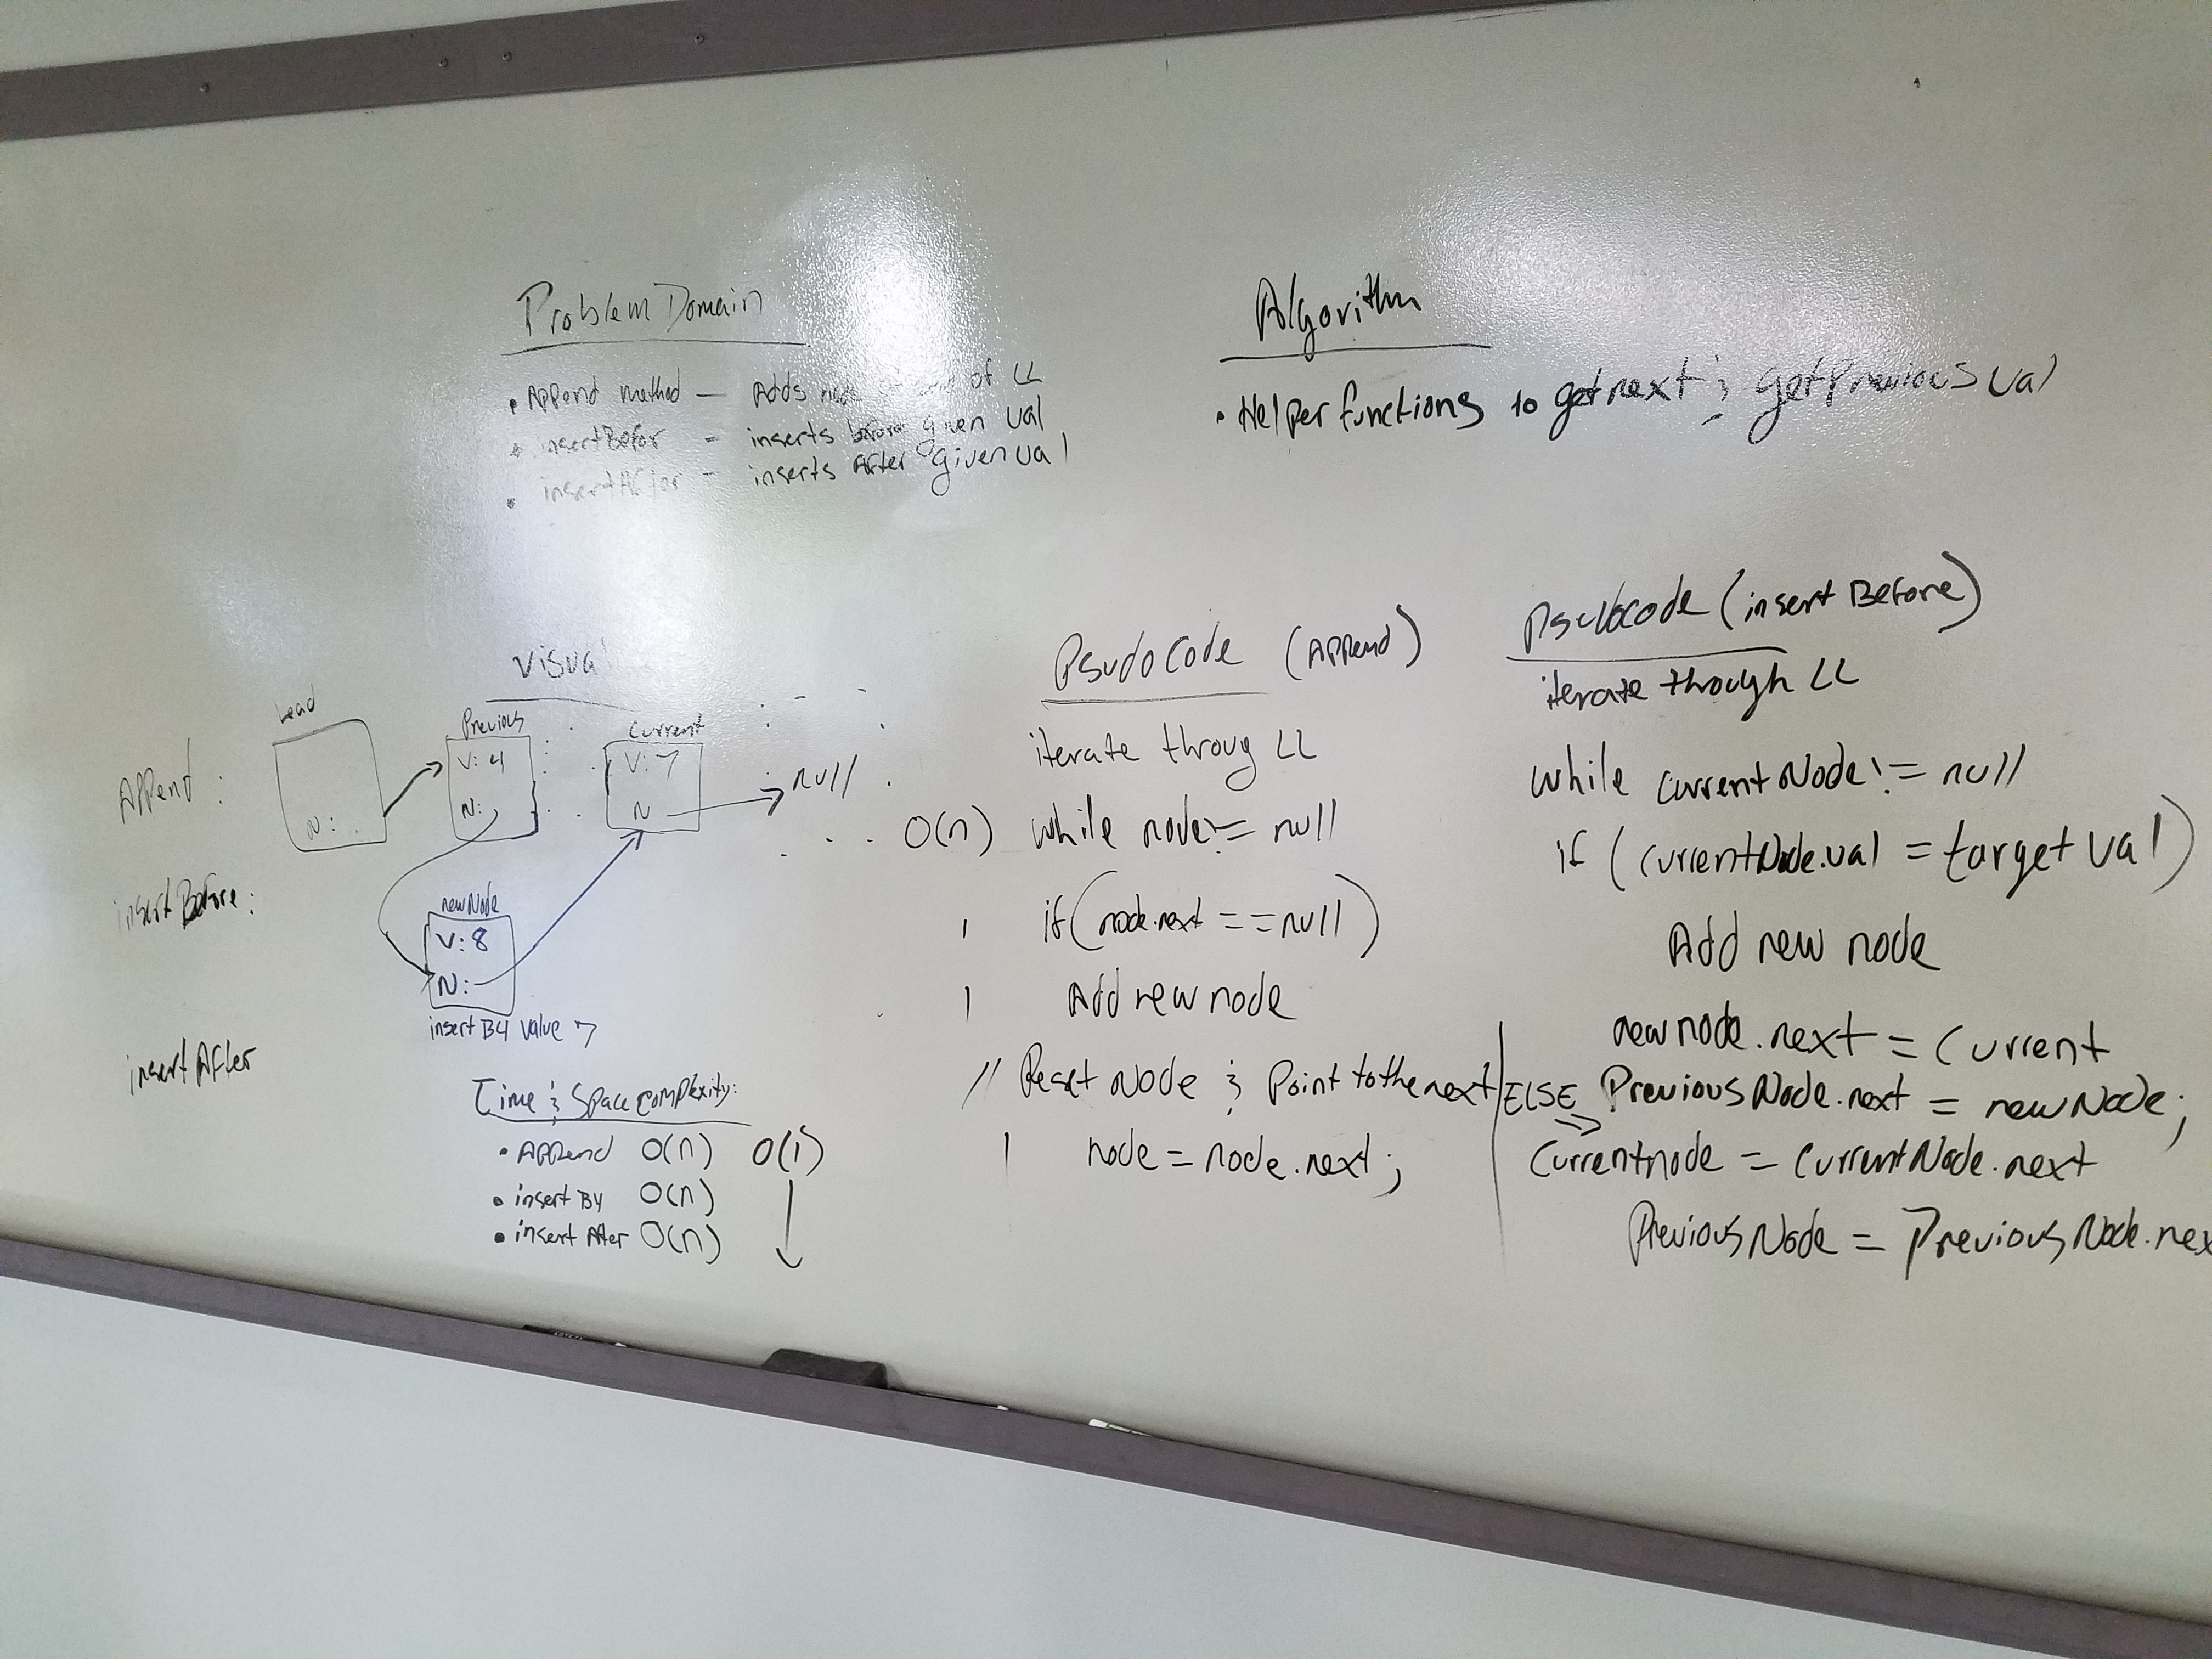 Problem Domain
• Append method - Adds node of LL
• insertBefor - inserts before given val
• insertAfter - inserts After given val
Algorithm
• Helper functions to getnext & getPrevious val
Visual
Append:
insertBefore:
insertAfter
head
N:
Previous
V: 4
N:
Current
V: 7
N
null
newNode
V: 8
N:
insert B4 value 7
Time & Space complexity:
• Append O(n) O(1)
• insert B4 O(n)
• insert After O(n)
Psudocode (Append)
iterate throug LL
O(n) while node != null
1 if (node.next == null)
1 Add new node
// Reset Node & Point to the next
1 node = node.next;
Psudocode (insert Before)
iterate through LL
while currentNode != null
if (currentNode.val = target val)
Add new node
newnode.next = Current
PreviousNode.next = newNode;
ELSE
Currentnode = CurrentNode.next
PreviousNode = PreviousNode.nex